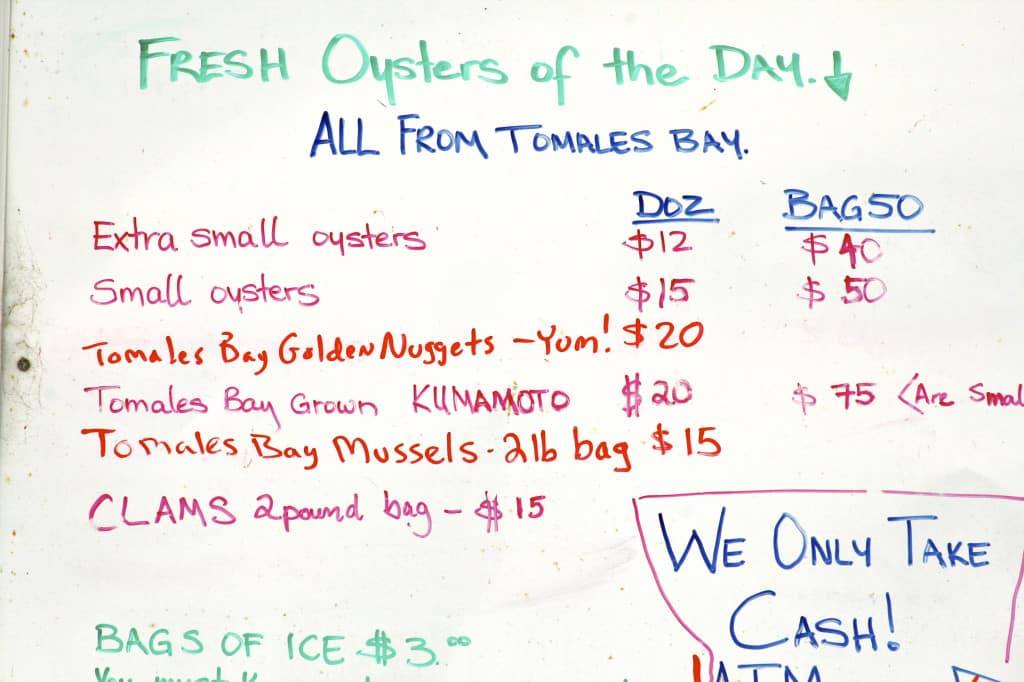 FRESH Oysters of the DAY.↓
ALL FROM TOMALES BAY.
DOZ BAG 50
Extra small oysters $12 $40
Small oysters $15 $50
Tomales Bay Golden Nuggets -Yum! $20
Tomales Bay Grown KUMAMOTO $20 $75 (Are Smal
Tomales Bay Mussels - 2lb bag $15
CLAMS 2 pound bag - $15
WE ONLY TAKE
CASH!
BAGS OF ICE $3.00
You must
ATM